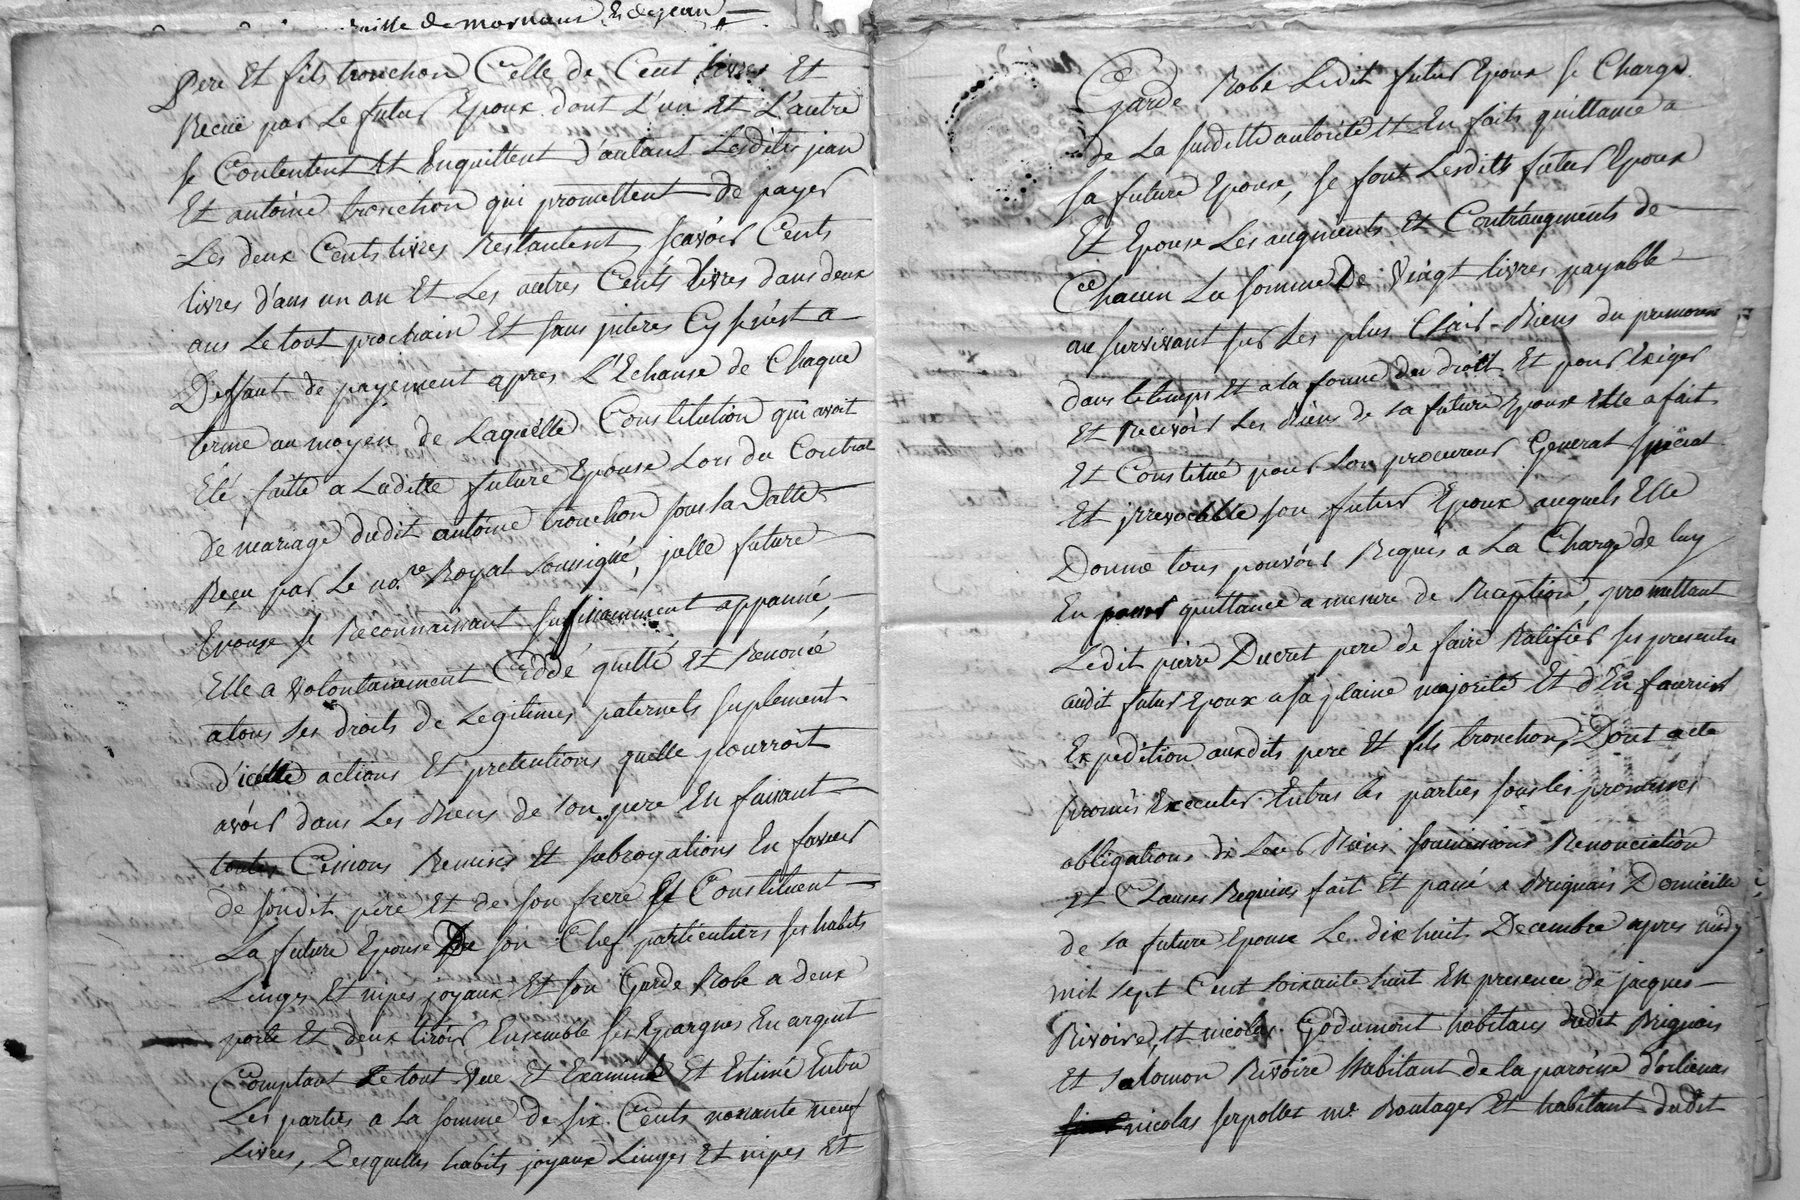 ville de mornant Et de jean
Pere Et fils tronchon Celle de Cent livres Et
Recüe par Le futur Epoux dont L'un Et L'autre
se Contentent Et Enquittent d'autant Lesdits jean
Et antoine tronchon qui promettent de payer
Les deux Cents livres Restantent, scavoir Cents
livres d'ans un an Et Les autres Cents livres dans deux
ans Le tout prochain Et sans jnteres Cy se n'est a
Deffaut de payement apres L'Echause de Chaque
terme au moyen de Laquelle Constitution qui avoit
Eté faitte a Laditte future Epouse Lors du Contrat
de mariage dudit antoine tronchon sous sa Datte
Reçu par Le no.re Royal soussigné, jcelle future
Epouse se Reconnaissant suffisamment appanné,
Elle a volontairement Ceddé quitté Et Renoncé
atous ses droits de Legitimes paternels suplement
d'icelle actions Et pretentions quelle pourroit
avoir dans Les Biens de son pere En faisant
Cessions Remises Et subrogations En faveur
de sondit pere Et de son frere Se Constituent
La future Epouse De son Chef particuliers ses habits
Linges Et nipes joyaux Et son Garde Robe a deux
porte Et deux tiroir Ensemble ses Epargnes En argent
Comptant Le tout Vüe Et Examiné Et Estimé Entre
Les parties a La somme de six Cents nonante neuf
Livres, Desquelles habits joyaux Linges Et nipes Et
Garde Robe Ledit futur Epoux se Charge
de La susditte autorité Et En fait quittance a
sa future Epouse, se font Lesdits futur Epoux
Et Epouse Les augments Et Contraugments de
Chacun La somme De Vingt livres payable
au survivant sur Les plus Clair Biens du premourx
dans le temps Et a la forme du droitt Et pour Exiger
Et recevoir Les Biens de sa future Epouse Elle a fait
Et Constitué pour son procureur General special
Et jrrevocable son futur Epoux auquels Elle
Donne tous pouvoir Requis a La Charge de luy
En passer quittance a mesure de Reception, promettant
Ledit pierre Ducret pere de faire Ratifier ses presentes
audit futur Epoux a sa plaine majorité Et d'En fournir
Expedition auxdits pere Et fils tronchon, Dont acte
promis Executer Entres les parties sous les promesses
obligations de Leur Biens soumissions Renonciation
Et Clauses Requises fait Et passé a Brignais Domicille
de La future Epouse Le dix huit Decembre apres midy
mil sept Cent soixante huit En presence de jacques
Rivoire, Et nicolas Godumont habitans dudit Brignais
Et salomon Rivoire habitant de la paroisse d'orlienas
nicolas serpollet me. Boulager Et habitant dudit